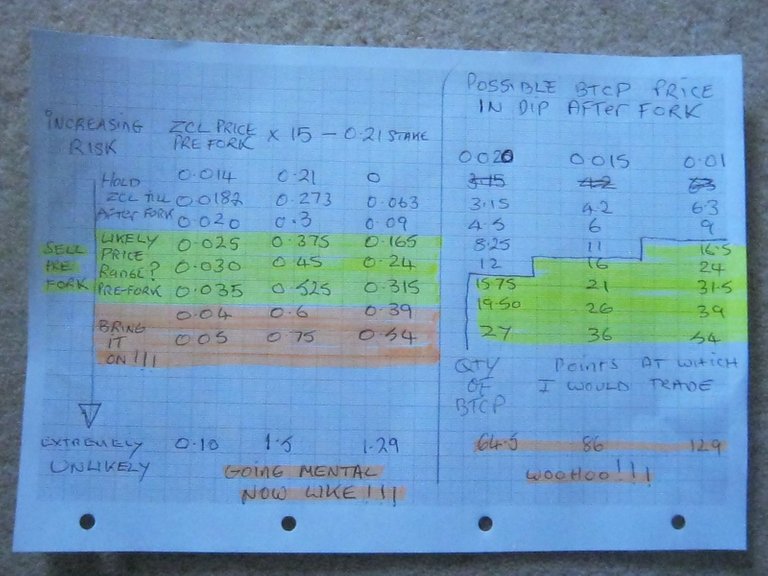 POSSIBLE BTCP PRICE
IN DIP AFTER FORK
INCREASING RISK
ZCL PRICE PRE FORK × 15 - 0.21 STAKE
0.020 0.015 0.01
HOLD 0.014 0.21 0 3.15 4.2 6.3
ZCL TILL 0.0182 0.273 0.063 3.15 4.2 6.3
AFTER FORK 0.020 0.3 0.09 4.5 6 9
LIKELY 0.025 0.375 0.165 8.25 11 16.5
SELL PRE FORK
PRICE RANGE? 0.030 0.45 0.24 12 16 24
PRE-FORK 0.035 0.525 0.315 15.75 21 31.5
0.04 0.6 0.39 19.50 26 39
BRING IT ON!!! 0.05 0.75 0.54 27 36 54
QTY OF BTCP
POINTS AT WHICH
I WOULD TRADE
EXTREMELY UNLIKELY 0.10 1.5 1.29 64.5 86 129
GOING MENTAL
NOW LIKE!!!
WOOHOO!!!